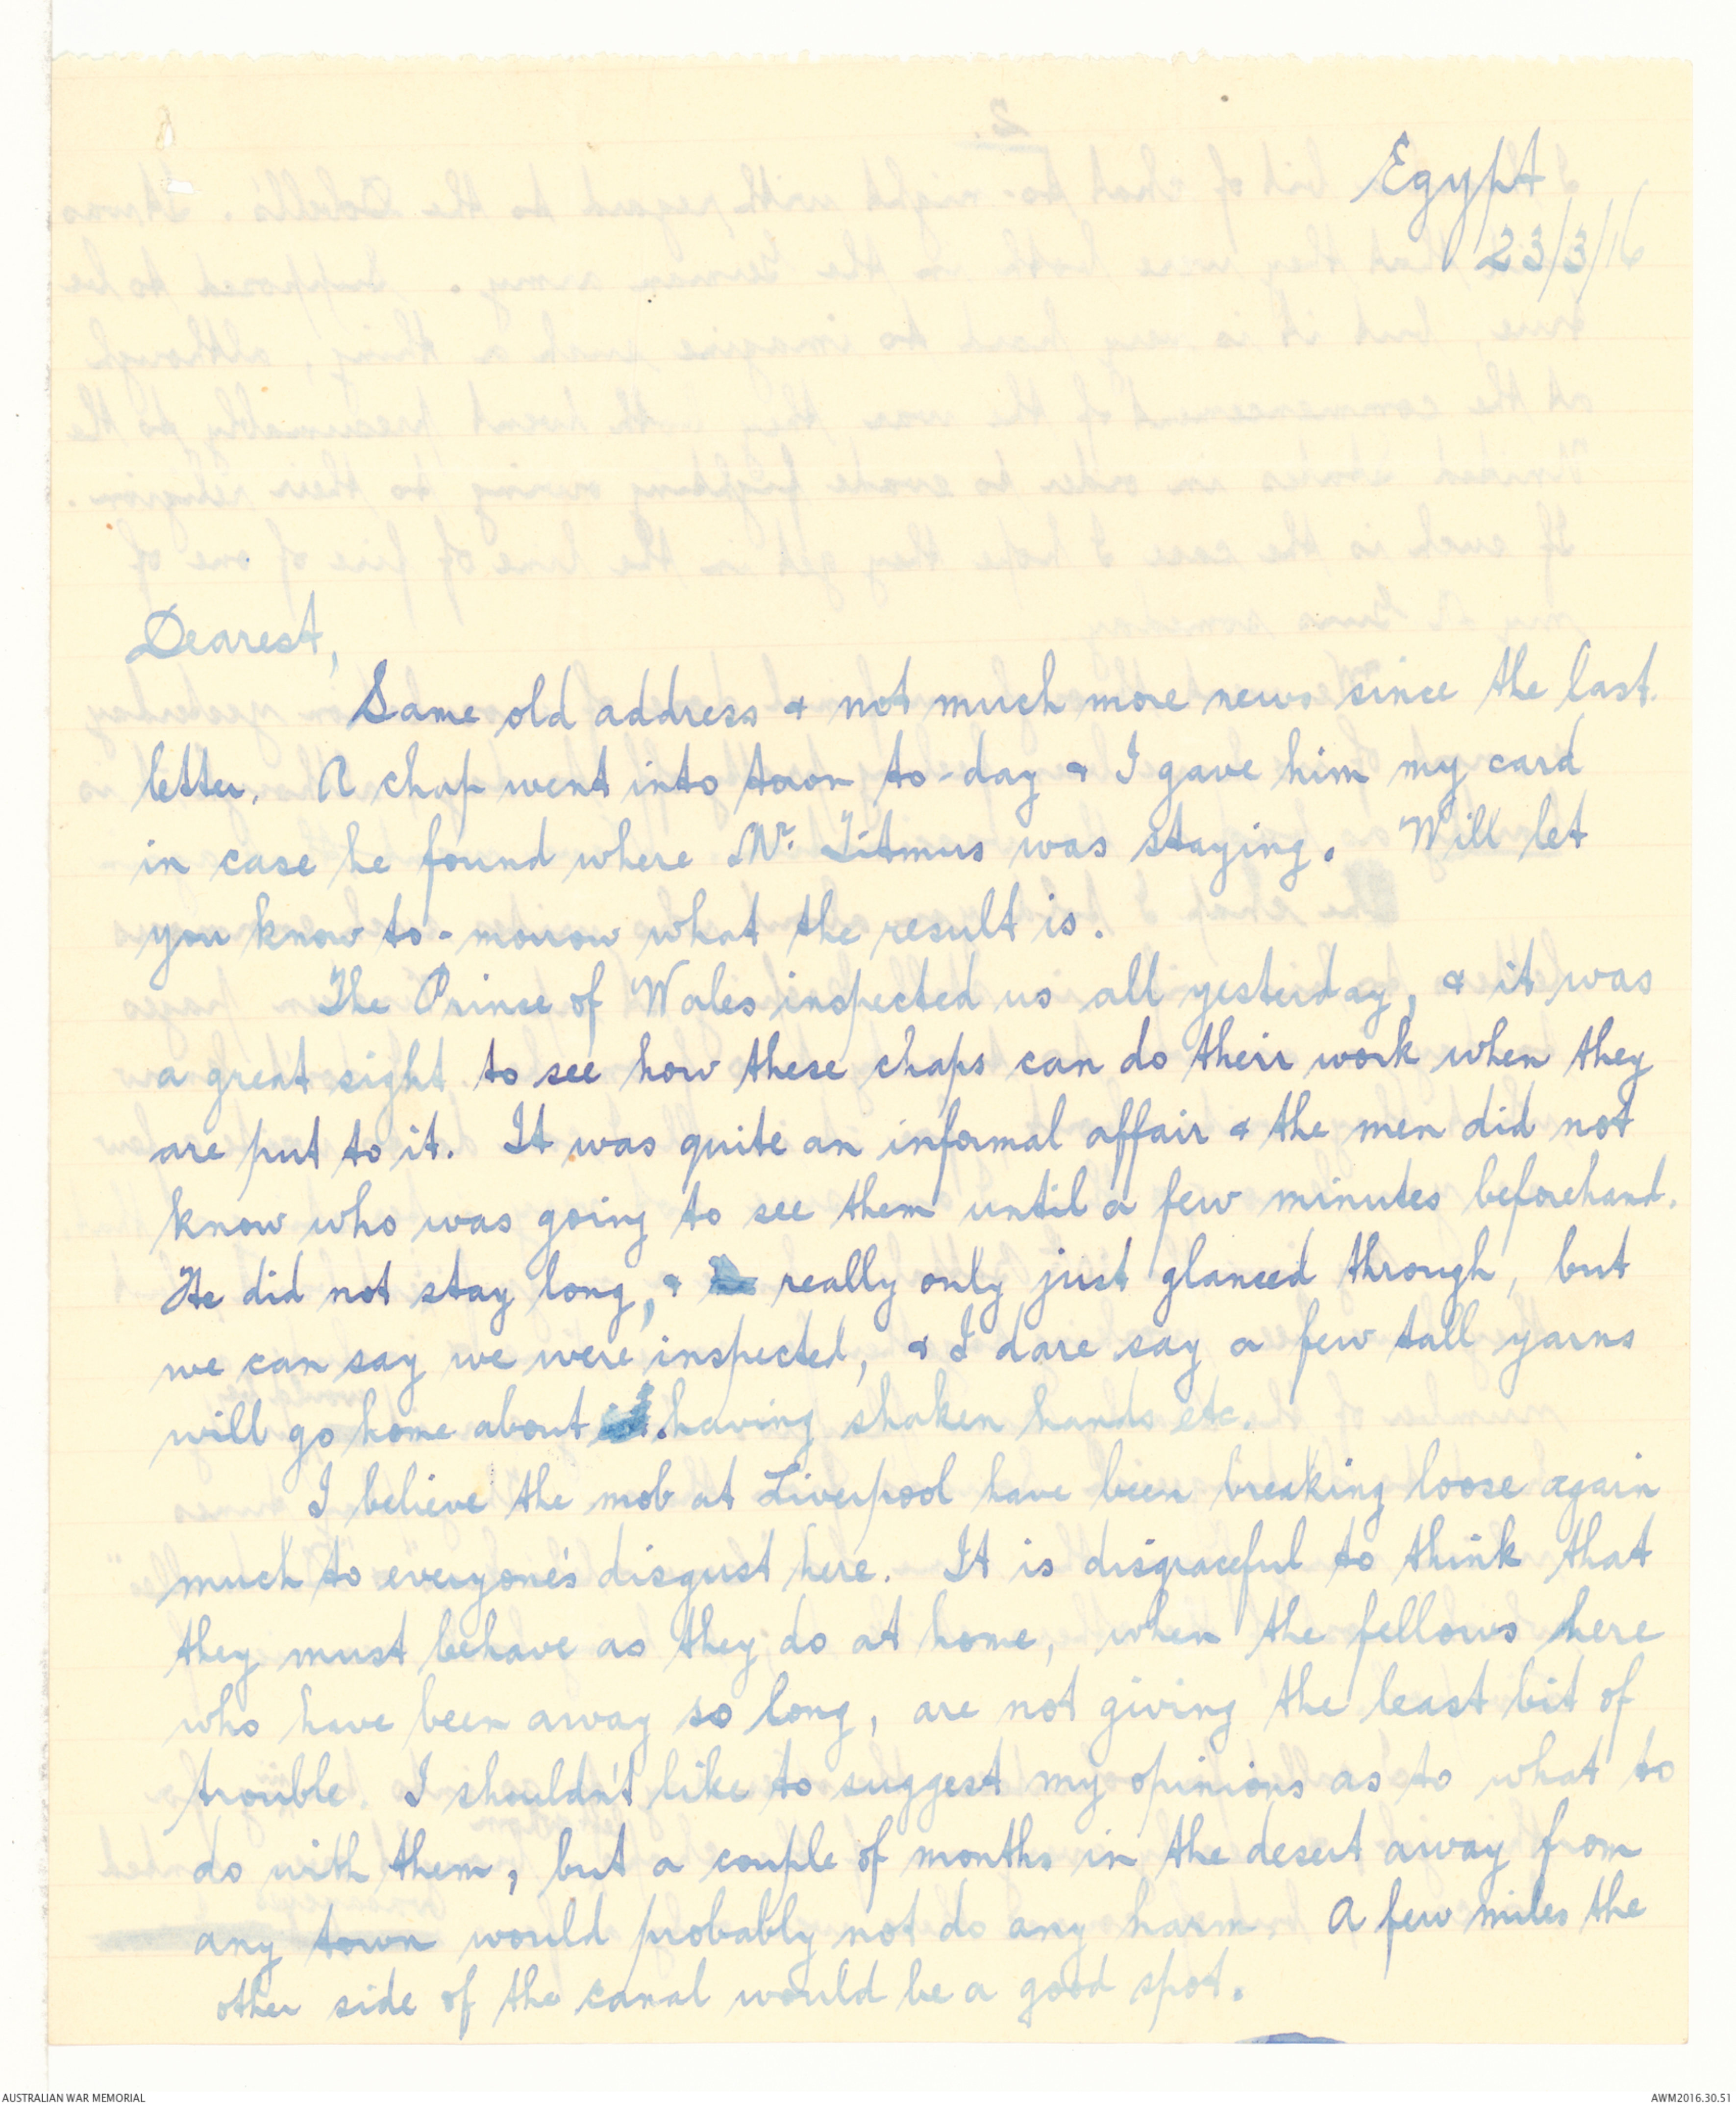 Egypt
23/3/16
Dearest,
Same old address & not much more news since the last
letter. A chap went into town to-day & I gave him my card
in case he found where Mr. Titmus was staying. Will let
you know to-morrow what the result is.
The Prince of Wales inspected us all yesterday, & it was
a great sight to see how these chaps can do their work when they
are put to it. It was quite an informal affair & the men did not
know who was going to see them until a few minutes beforehand.
He did not stay long, & really only just glanced through, but
we can say we were inspected, & I dare say a few tall yarns
will go home about having shaken hands etc.
I believe the mob at Liverpool have been breaking loose again
much to everyone's disgust here. It is disgraceful to think that
they must behave as they do at home, when the fellows here
who have been away so long, are not giving the least bit of
trouble. I shouldn't like to suggest my opinions as to what to
do with them, but a couple of months in the desert away from
any town would probably not do any harm. A few miles the
other side of the canal would be a good spot.
AUSTRALIAN WAR MEMORIAL
AWM2016.30.51